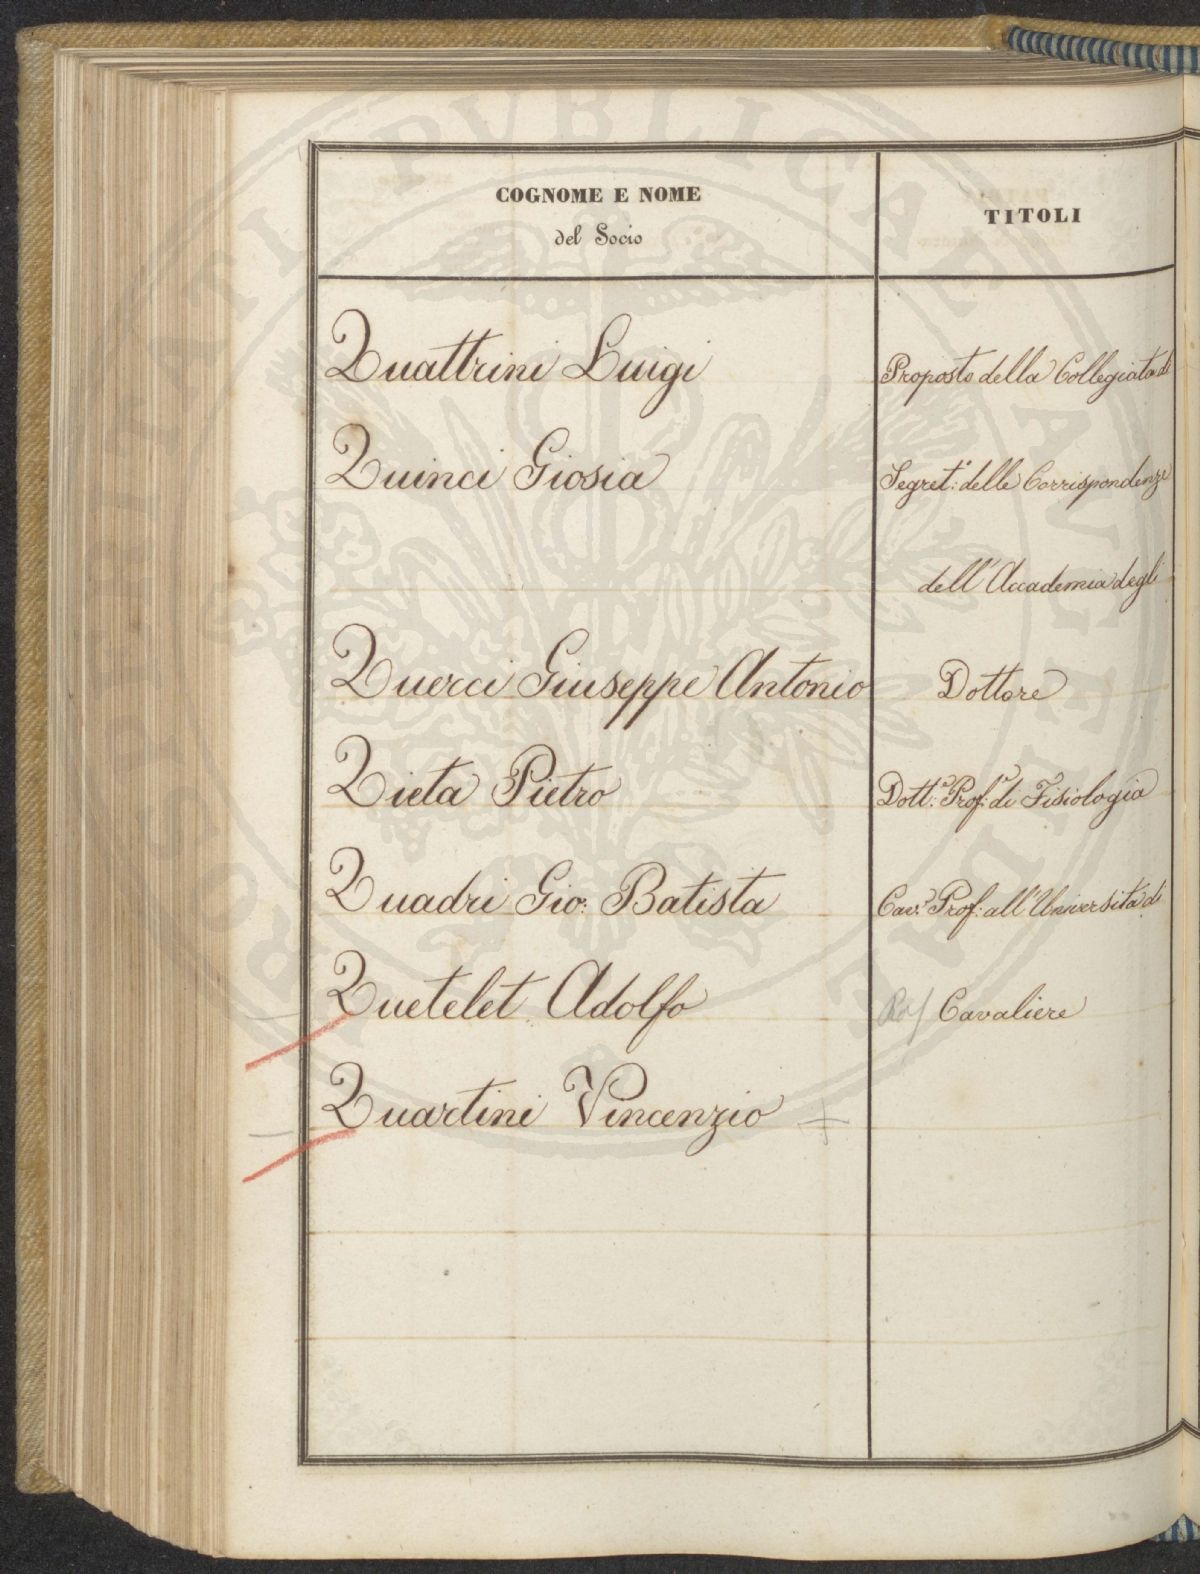 COGNOME E NOME
del Socio
TITOLI
Quattrini Luigi
Proposto della Collegiata di
Quinci Giosia
Segret.° delle Corrispondenze
dell'Accademia degli
Querci Giuseppe Antonio
Dottore
Qieta Pietro
Dott.e Prof.e di Fisiologia
Quadri Gio: Batista
Cav.e Prof: all'Università di
Quetelet Adolfo
Cavaliere
Quartini Vincenzio +